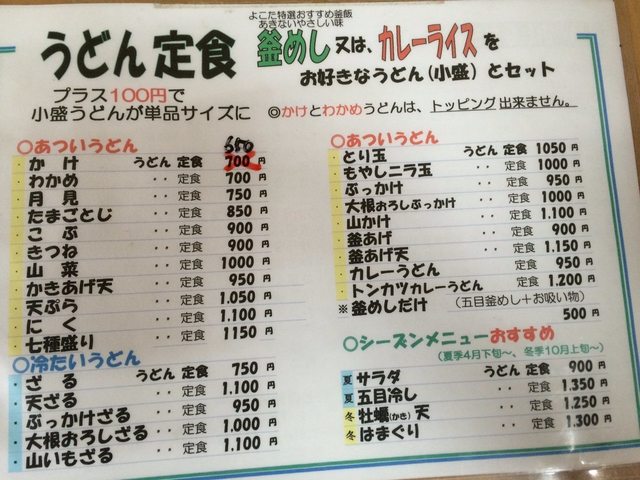 よこた特選おすすめ釜飯
あきないやさしい味
うどん定食 釜めし又は、カレーライスを
お好きなうどん(小盛)とセット
プラス100円で
小盛うどんが単品サイズに
◎かけとわかめうどんは、トッピング出来ません。
○あついうどん
650
・かけ うどん 定食 700円
・わかめ ・・ 定食 700円
・月見 ・・ 定食 750円
・たまごとじ ・・ 定食 850円
・こぶ ・・ 定食 900円
・きつね ・・ 定食 900円
・山菜 ・・ 定食 1000円
・かきあげ天 ・・ 定食 950円
・天ぷら ・・ 定食 1.050円
・にく ・・ 定食 1.100円
・七種盛り ・・ 定食 1150円
○冷たいうどん
・ざる うどん 定食 750円
・天ざる ・・ 定食 1.100円
・ぶっかけざる ・・ 定食 950円
・大根おろしざる ・・ 定食 1.000円
・山いもざる ・・ 定食 1.100円
○あついうどん
・とり玉 うどん 定食 1050円
・もやしニラ玉 ・・ 定食 1000円
・ぶっかけ ・・ 定食 950円
・大根おろしぶっかけ ・・ 定食 1000円
・山かけ ・・ 定食 1.100円
・釜あげ ・・ 定食 900円
・釜あげ天 ・・ 定食 1.150円
・カレーうどん ・・ 定食 950円
・トンカツカレーうどん ・・ 定食 1.200円
※釜めしだけ (五目釜めし+お吸い物)
500円
○シーズンメニューおすすめ
(夏季4月下旬〜、冬季10月上旬〜)
夏 サラダ うどん 定食 900円
夏 五目冷し ・・ 定食 1.350円
冬 牡蠣(かき)天 ・・ 定食 1.250円
冬 はまぐり ・・ 定食 1.300円